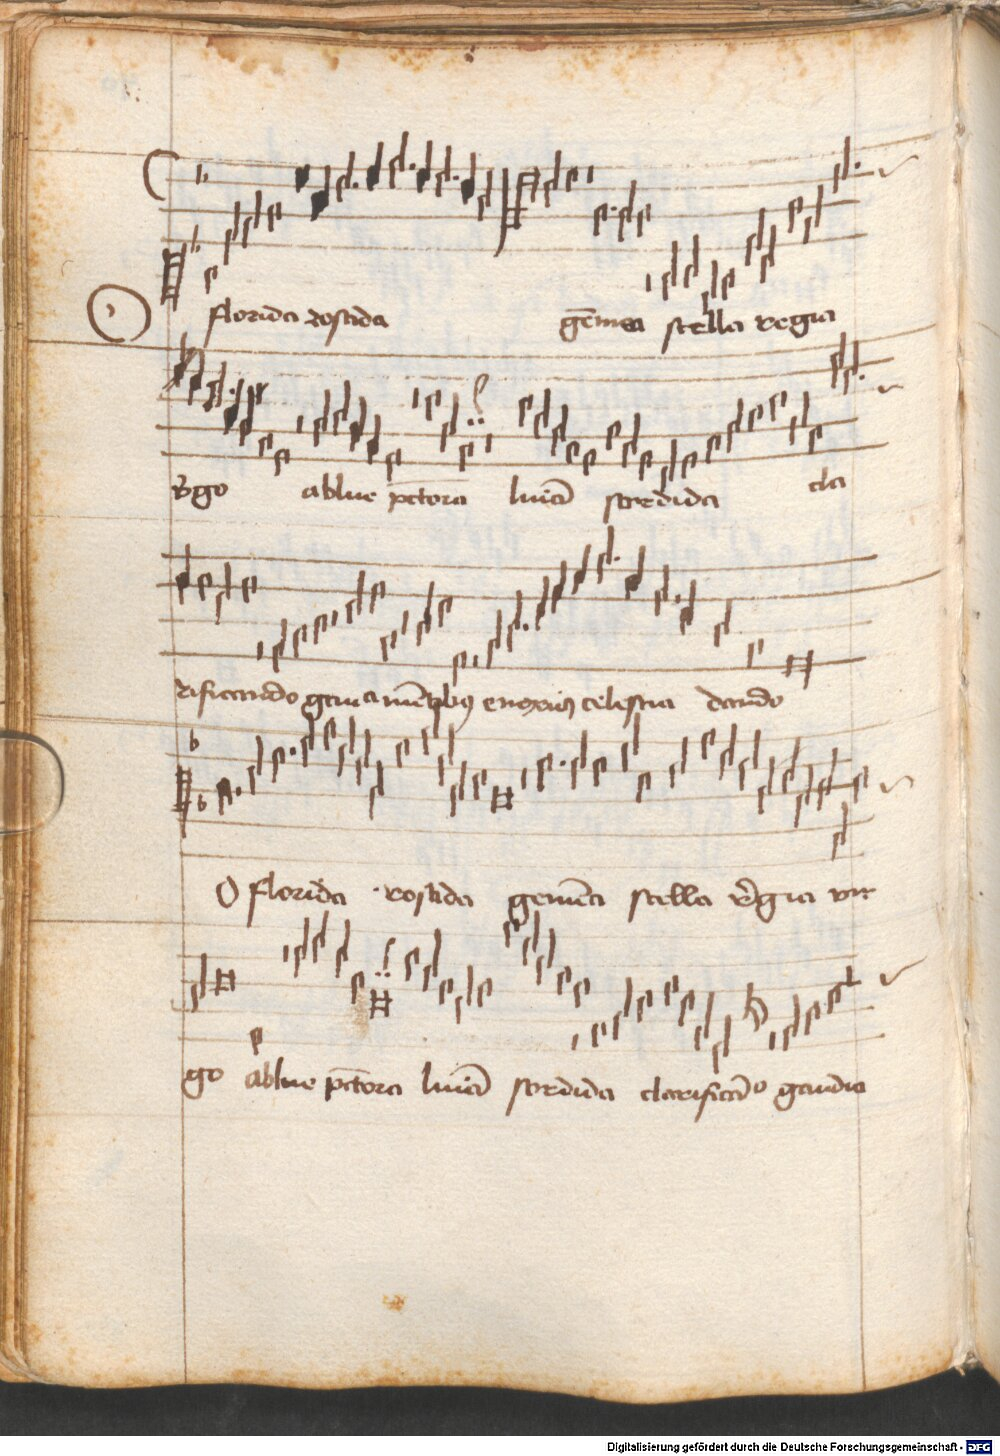 O florida rosida gēmea stella regia
v̄go ablue pctora liuiā sordida cla
rificando gaudia celestia dando
O florida rosida gemea stella regia vir
go ablue pctora liuiā sordida clarificādo gaudia
Digitalisierung gefördert durch die Deutsche Forschungsgemeinschaft - DFG